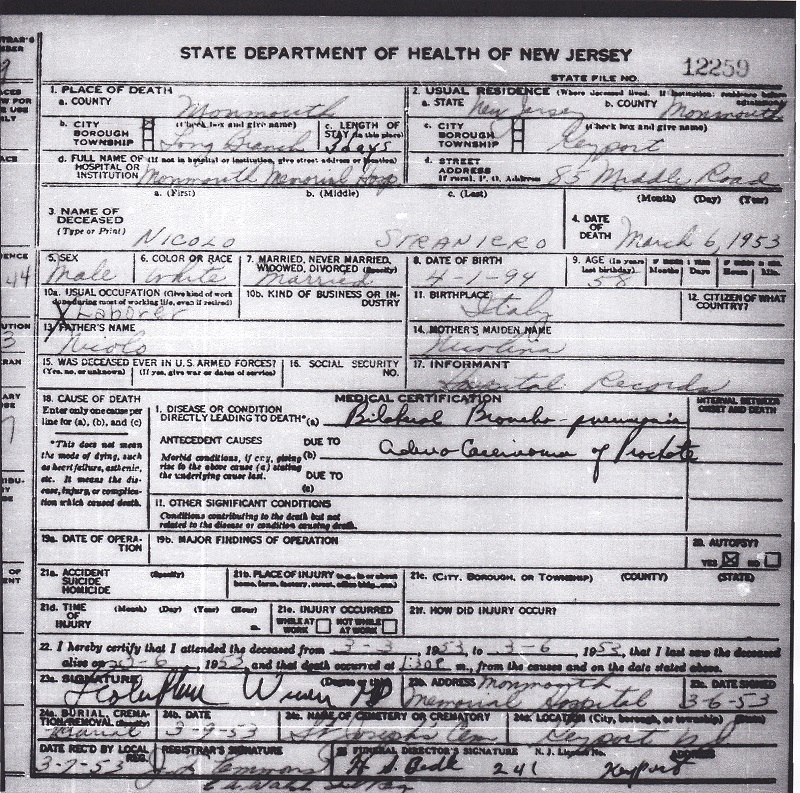 STATE DEPARTMENT OF HEALTH OF NEW JERSEY
STATE FILE NO. 12259
1. PLACE OF DEATH
a. COUNTY Monmouth
b. CITY BOROUGH TOWNSHIP (Check box and give name) Long Branch
c. LENGTH OF STAY (in this place) 3 days
d. FULL NAME OF HOSPITAL OR INSTITUTION (If not in hospital or institution, give street address or location) Monmouth Memorial Hosp
2. USUAL RESIDENCE (Where deceased lived. If institution: residence before admission)
a. STATE New Jersey b. COUNTY Monmouth
c. CITY BOROUGH TOWNSHIP (Check box and give name) Keyport
d. STREET ADDRESS If rural, P. O. Address 85 Middle Road
3. NAME OF DECEASED (Type or Print)
a. (First) b. (Middle) c. (Last)
NICOLO STRANIERO
4. DATE OF DEATH (Month) (Day) (Year) March 6, 1953
5. SEX Male
6. COLOR OR RACE White
7. MARRIED, NEVER MARRIED, WIDOWED, DIVORCED (Specify) Married
8. DATE OF BIRTH 4-1-94
9. AGE (In years last birthday) 58 Months Days Hours Min.
10a. USUAL OCCUPATION (Give kind of work done during most of working life, even if retired) Laborer
10b. KIND OF BUSINESS OR INDUSTRY
11. BIRTHPLACE Italy
12. CITIZEN OF WHAT COUNTRY?
13. FATHER'S NAME Nicolo
14. MOTHER'S MAIDEN NAME Nicolina
15. WAS DECEASED EVER IN U.S. ARMED FORCES? (Yes, no, or unknown) (If yes, give war or dates of service)
16. SOCIAL SECURITY NO.
17. INFORMANT Hospital Records
MEDICAL CERTIFICATION
INTERVAL BETWEEN ONSET AND DEATH
18. CAUSE OF DEATH
Enter only one cause per line for (a), (b), and (c)
*This does not mean the mode of dying, such as heart failure, asthenia, etc. It means the disease, injury, or complication which caused death.
1. DISEASE OR CONDITION DIRECTLY LEADING TO DEATH* (a) Bilateral Broncho-pneumonia
ANTECEDENT CAUSES
Morbid conditions, if any, giving rise to the above cause (a) stating the underlying cause last.
DUE TO (b) Adeno Carcinoma of Prostate
DUE TO (c)
11. OTHER SIGNIFICANT CONDITIONS
Conditions contributing to the death but not related to the disease or condition causing death.
19a. DATE OF OPERATION
19b. MAJOR FINDINGS OF OPERATION
20. AUTOPSY? YES NO
21a. ACCIDENT SUICIDE HOMICIDE (Specify)
21b. PLACE OF INJURY (e.g., in or about home, farm, factory, street, office bldg., etc.)
21c. (CITY, BOROUGH, OR TOWNSHIP) (COUNTY) (STATE)
21d. TIME OF INJURY (Month) (Day) (Year) (Hour) m.
21e. INJURY OCCURRED WHILE AT WORK NOT WHILE AT WORK
21f. HOW DID INJURY OCCUR?
22. I hereby certify that I attended the deceased from 3-3, 1953, to 3-6, 1953, that I last saw the deceased
alive on 3-6, 1953, and that death occurred at 1:30P m., from the causes and on the date stated above.
23a. SIGNATURE (Degree or title) MD
23b. ADDRESS Monmouth Memorial Hospital
23c. DATE SIGNED 3-6-53
24a. BURIAL, CREMATION, REMOVAL (Specify) Burial
24b. DATE 3-9-53
24c. NAME OF CEMETERY OR CREMATORY St Josephs Cem
24d. LOCATION (City, borough, or township) (State) Keyport NJ
DATE REC'D BY LOCAL REG. 3-7-53
REGISTRAR'S SIGNATURE
25 FUNERAL DIRECTOR'S SIGNATURE N. J. License No. ADDRESS
H. S. Bedle 241 Keyport